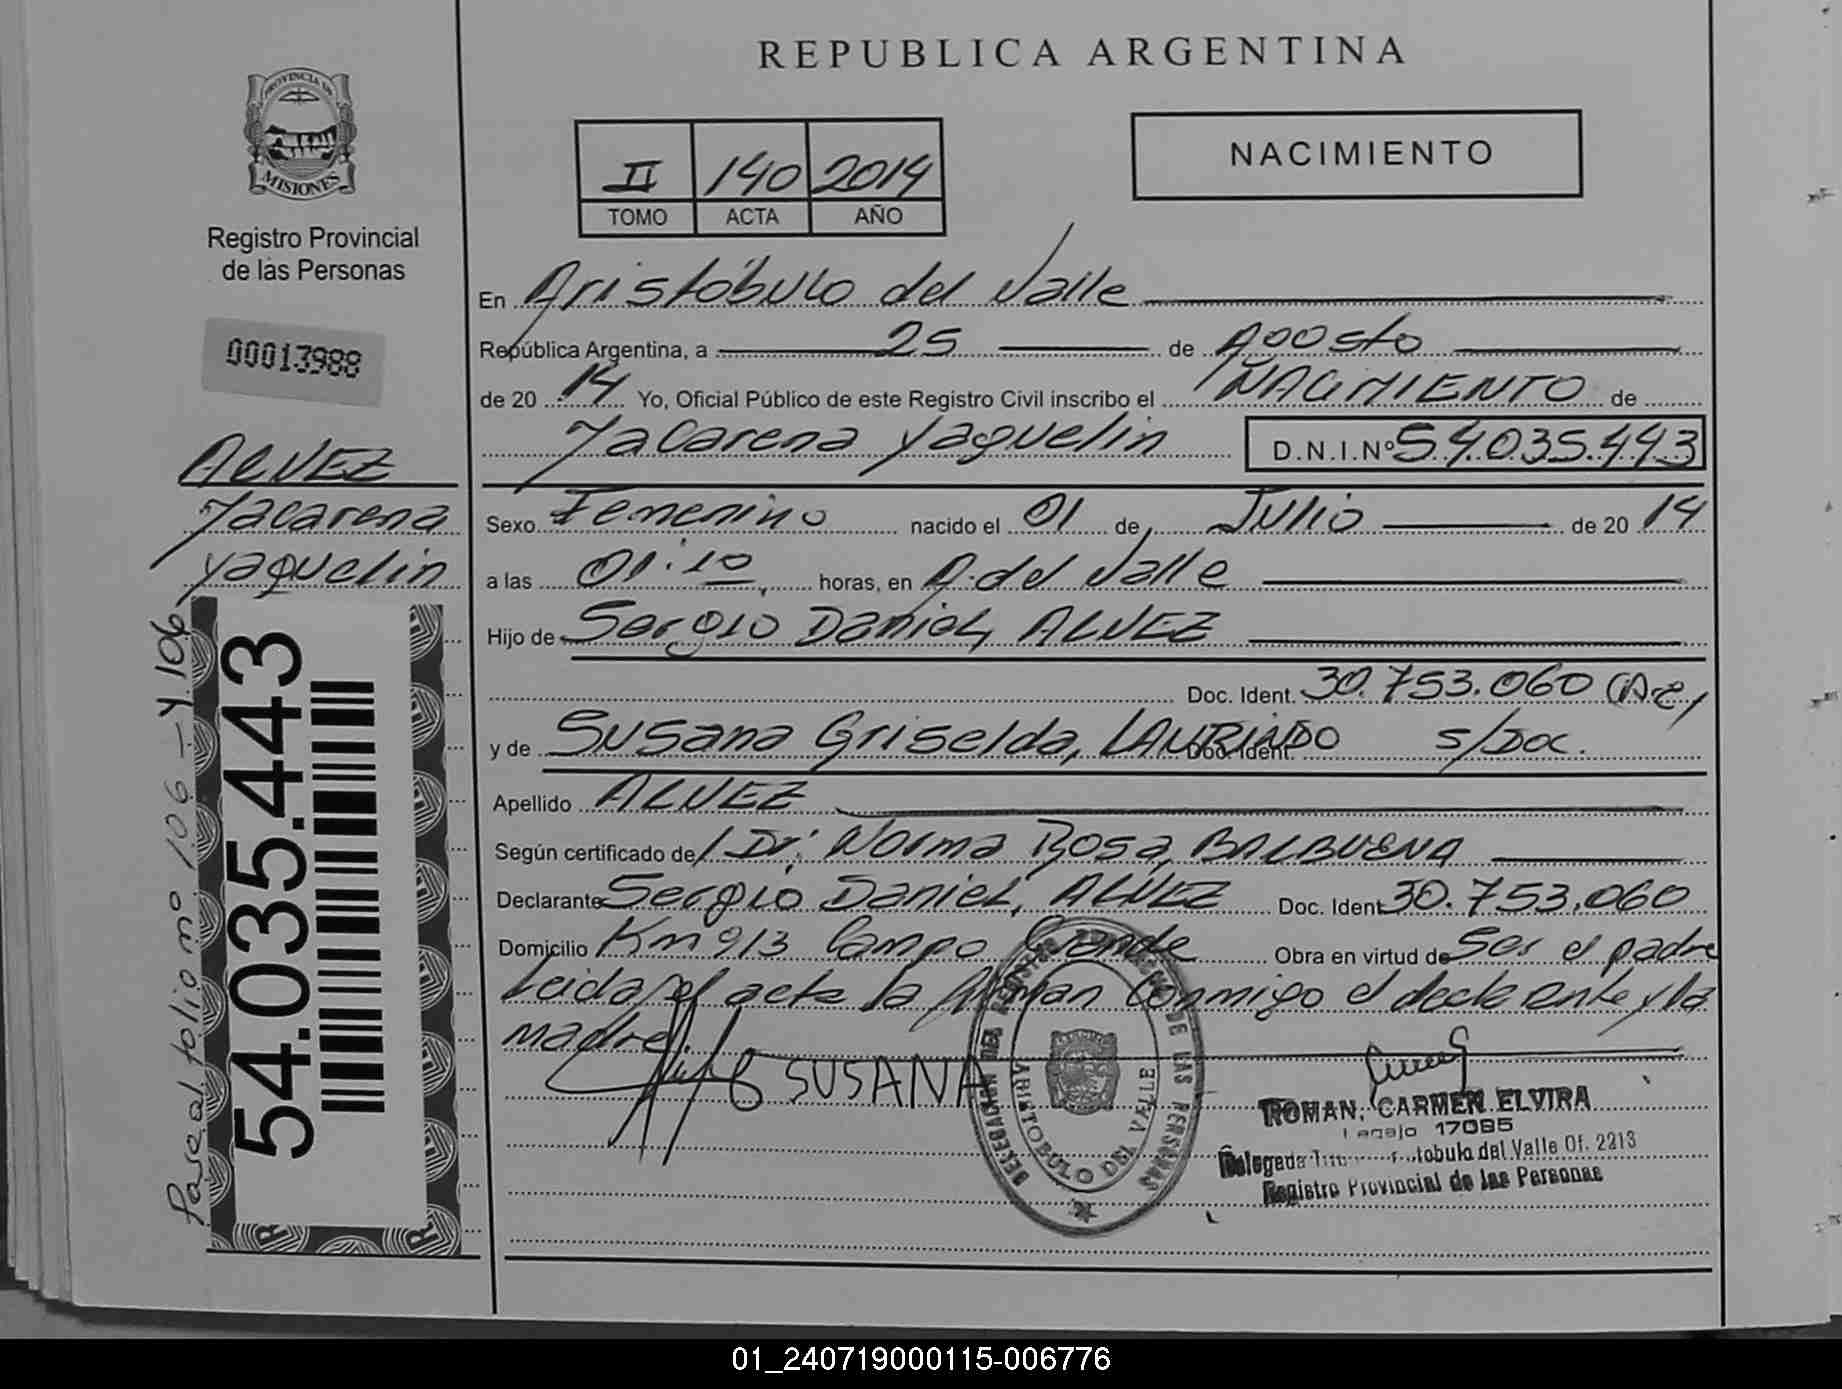 REPUBLICA ARGENTINA
PROVINCIA DE
MISIONES
Registro Provincial
de las Personas
NACIMIENTO
II 140 2014
TOMO ACTA AÑO
00013988
En Aristóbulo del Valle
República Argentina, a 25 de Agosto
de 20 14 Yo, Oficial Público de este Registro Civil inscribo el NACIMIENTO de
Macarena Yaquelin D.N.I.Nº 54.035.443
ALVEZ
Macarena
Yaquelin
Sexo Femenino nacido el 01 de Julio de 20 14
a las 01:10 horas, en A. del Valle
Hijo de Sergio Daniel, ALVEZ
Doc. Ident. 30.753.060
y de Susana Griselda, LAURINDO Doc. Ident. s/Doc.
Apellido ALVEZ
Según certificado de Norma Rosa, BALBUENA
Declarante Sergio Daniel, ALVEZ Doc. Ident 30.753.060
Domicilio Km 913 Campo Grande Obra en virtud de Ser el padre
Leida el acta la firman conmigo el declarante y la
madre.
SUSANA
54.035.443
Pase al folio nº 106 - Y.106
DELEGACION DEL REGISTRO PROVINCIAL DE LAS PERSONAS
ARISTOBULO DEL VALLE
ROMAN, CARMEN ELVIRA
Legajo 17085
Delegada del Valle Of. 2213
Registro Provincial de las Personas
01_240719000115-006776